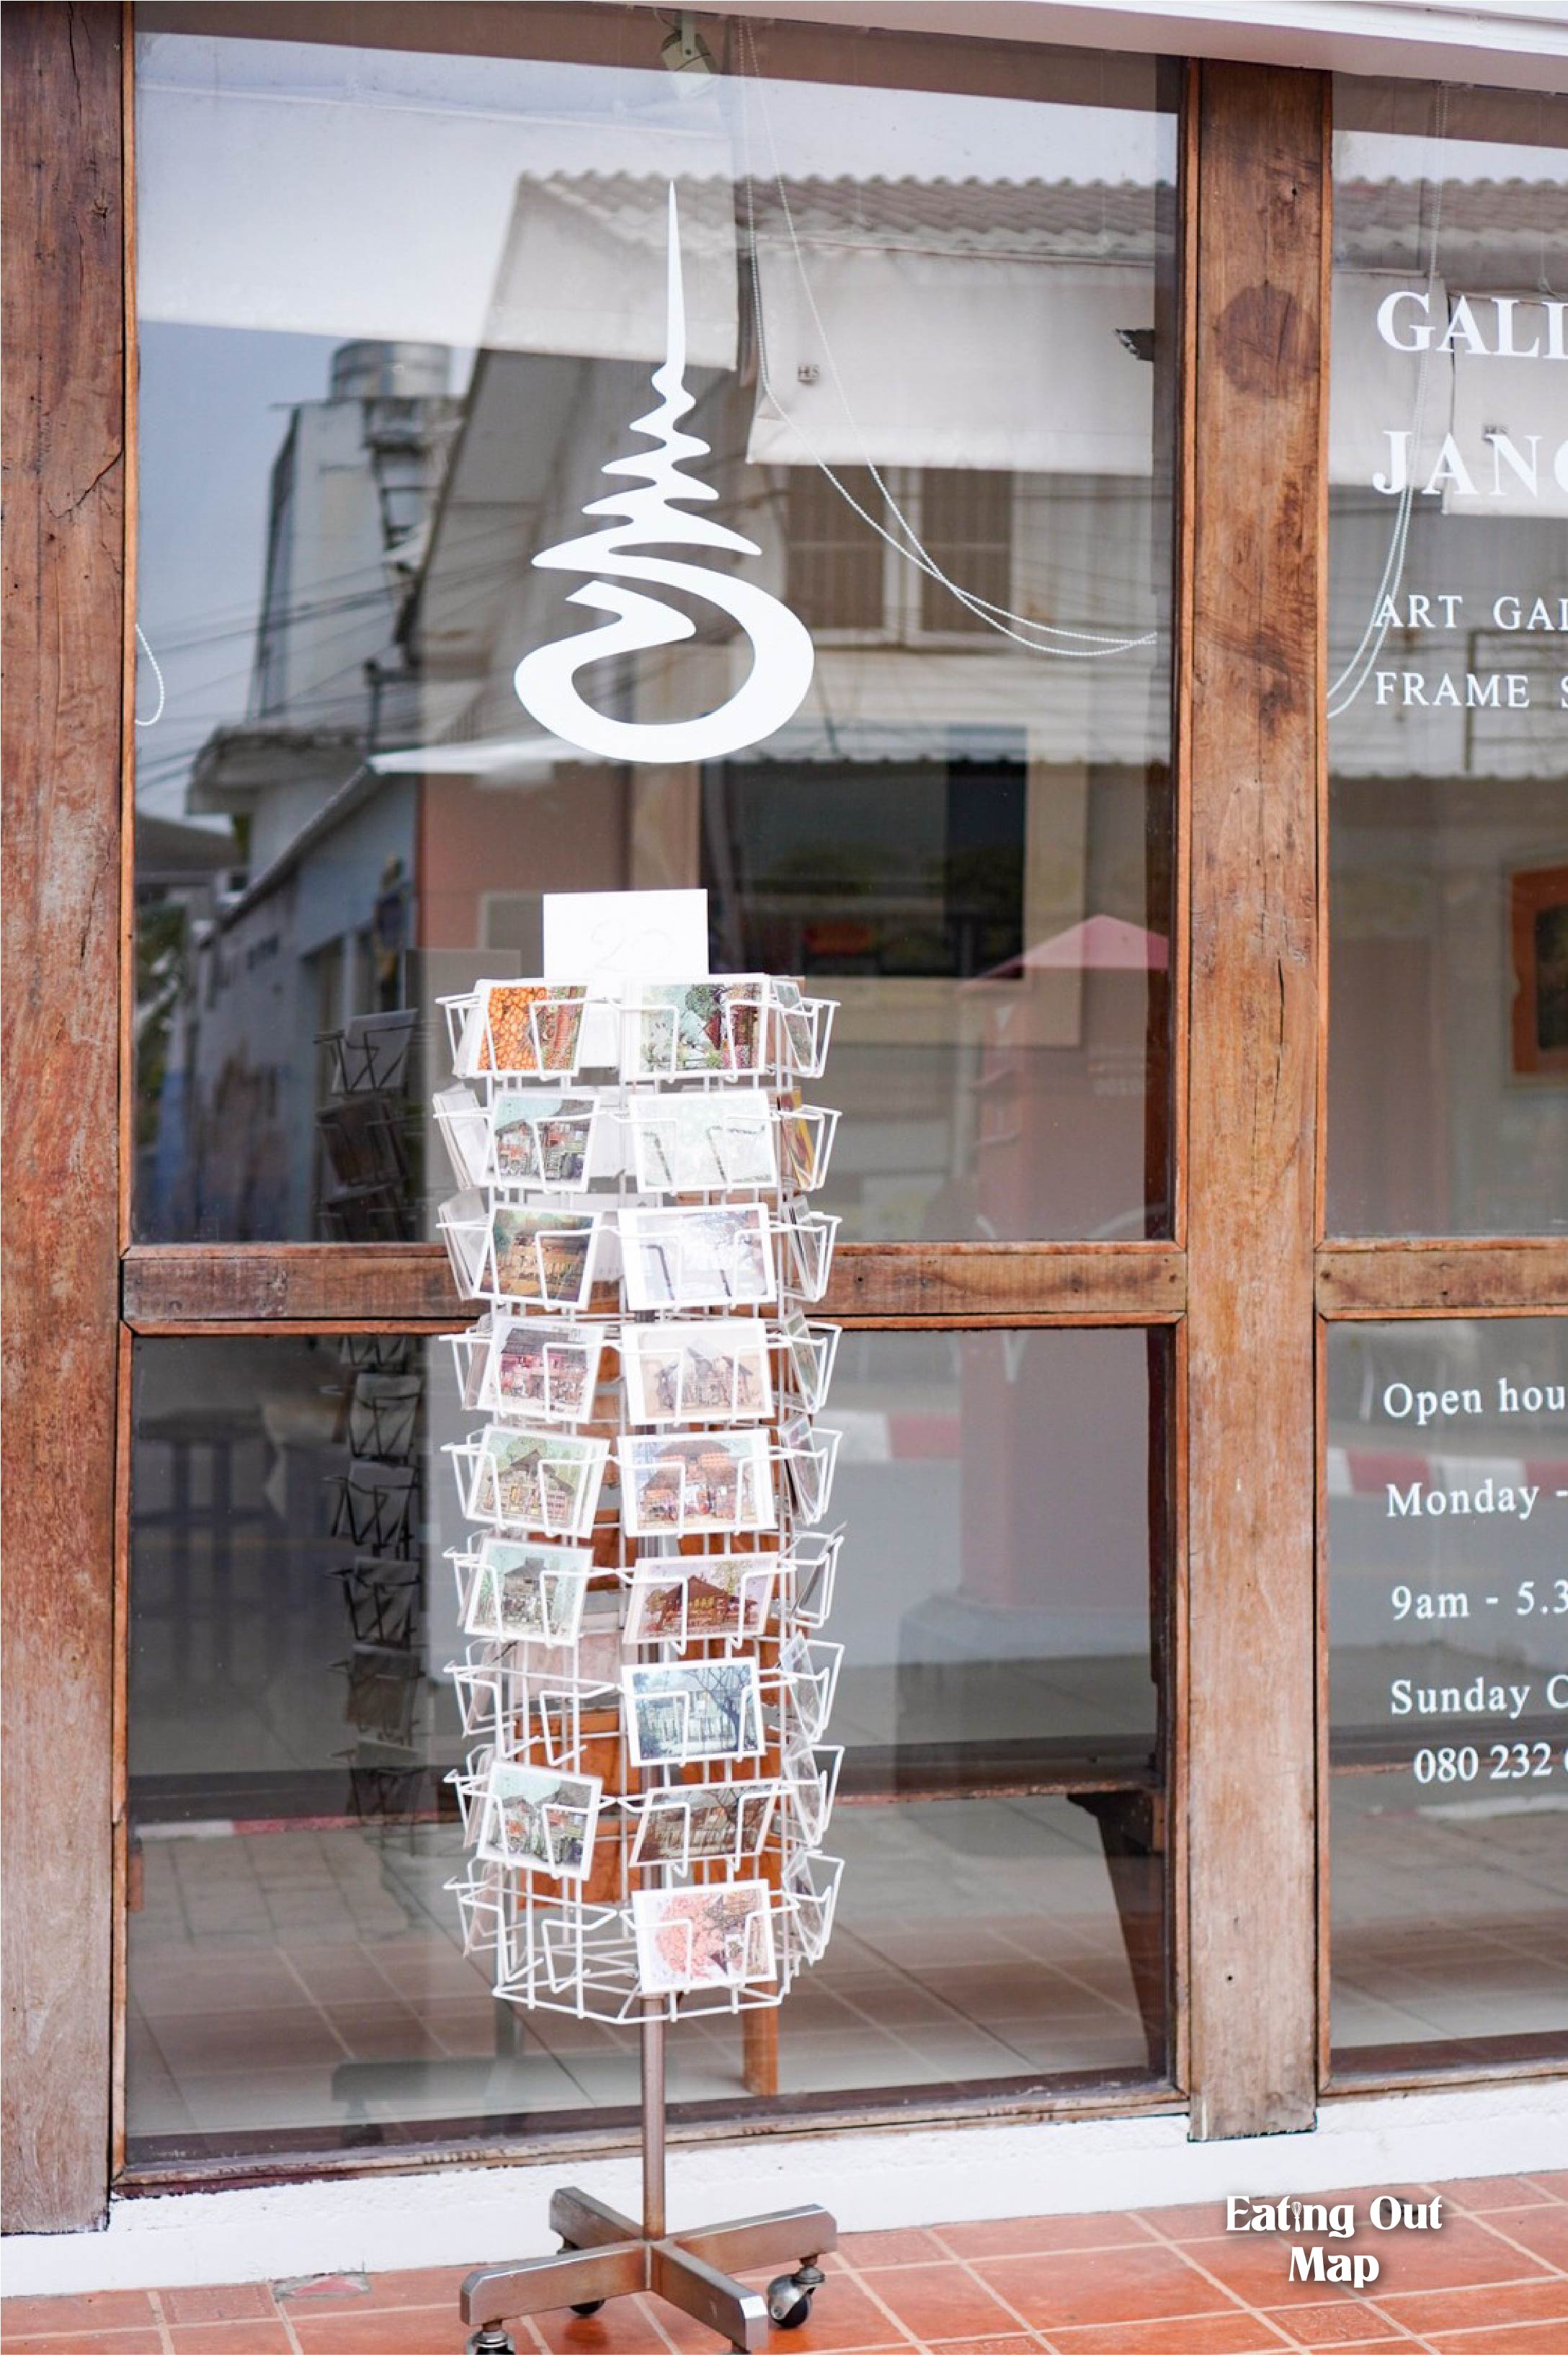 GALL
JANG
ART GAL
FRAME S
25
Open hou
Monday -
9am - 5.3
Sunday C
080 232
Eating Out
Map